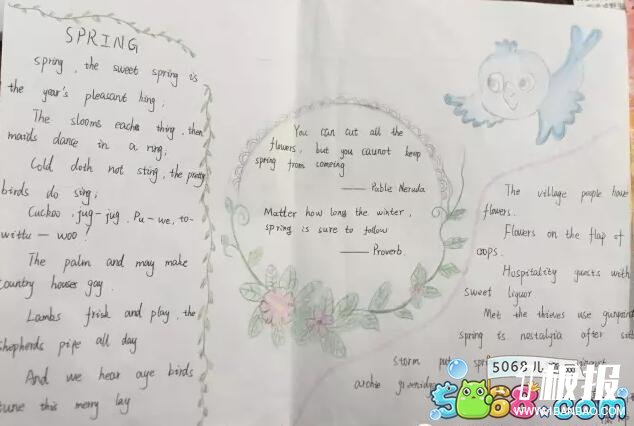 SPRING
spring, the sweet spring is
the year's pleasant king;
The slooms eache thing, then
maids dance in a ring,
Cold doth not sting, the pretty
birds do sing;
Cuckoo, jug-jug, Pu-we, to-
wittu - woo!
The palm and may make
country houses gay.
Lambs frisk and play, the
shepherds pipe all day
And we hear aye birds
tune this merry lay
You can cut all the
flowers, but you caunot keep
spring from comeing
—— Pable Neruda
Matter how long the winter,
spring is sure to follow
—— Proverb.
The village people have
flowers.
Flowers on the flap of
oops.
Hospitality guests with
sweet liquor
Met the thieves use
spring is nostalgia after
storm
5068儿
板报
5068.com
WWW.1BANBAO.COM